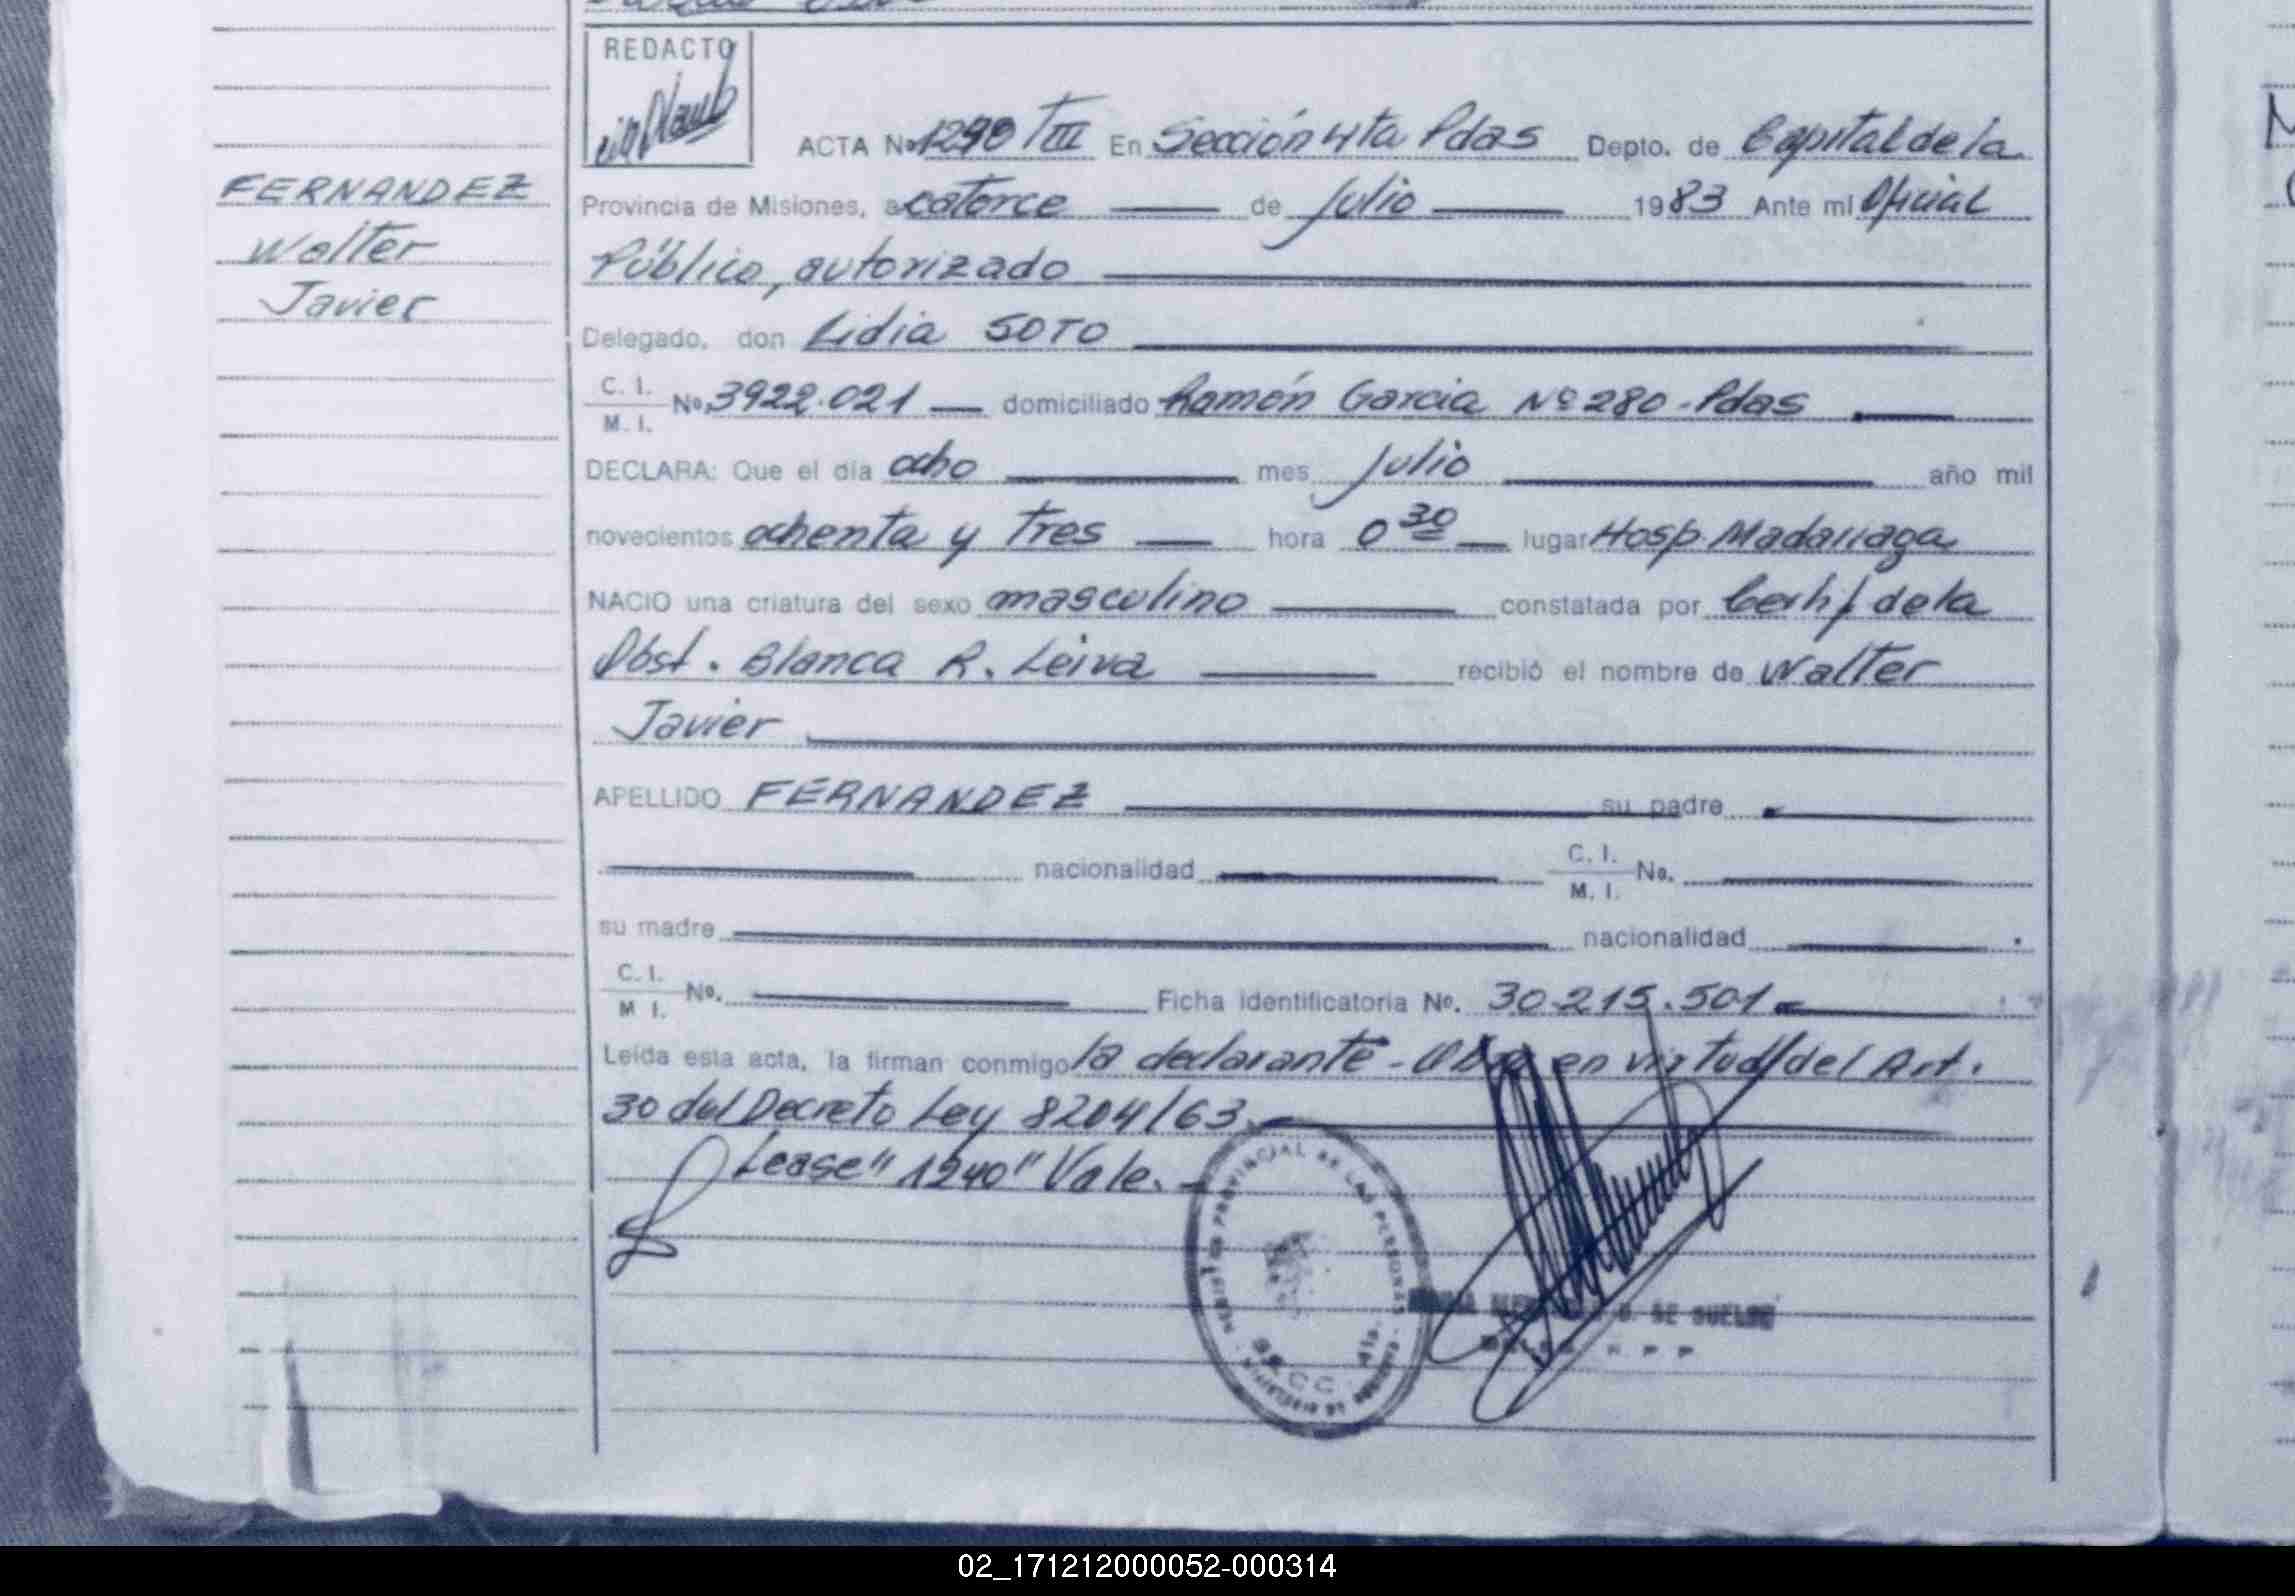 REDACTO
ACTA No 1290 TIII En Sección 4ta Pdas Depto. de Capital de la
FERNANDEZ
Walter
Javier
Provincia de Misiones, a catorce de Julio 1983 Ante mi Oficial
Público, autorizado
Delegado, don Lidia SOTO
C. I.
M. I.
No. 3922.021 domiciliado Ramón Garcia Nº 280 - Pdas
DECLARA: Que el día ocho mes Julio año mil
novecientos ochenta y tres hora 0 30 lugar Hosp. Madariaga
NACIO una criatura del sexo masculino constatada por Certif de la
Obst. Blanca R. Leiva recibió el nombre de Walter
Javier
APELLIDO FERNANDEZ su padre
nacionalidad C. I. M. I. No.
su madre nacionalidad
C. I. M I. No. Ficha identificatoria No. 30.215.501
Leída esta acta, la firman conmigo la declarante - en virtud del Art.
30 del Decreto Ley 8204/63.
Lease "1240" Vale.
PROVINCIAL DE LAS PERSONAS
DE SUELDO
02_171212000052-000314